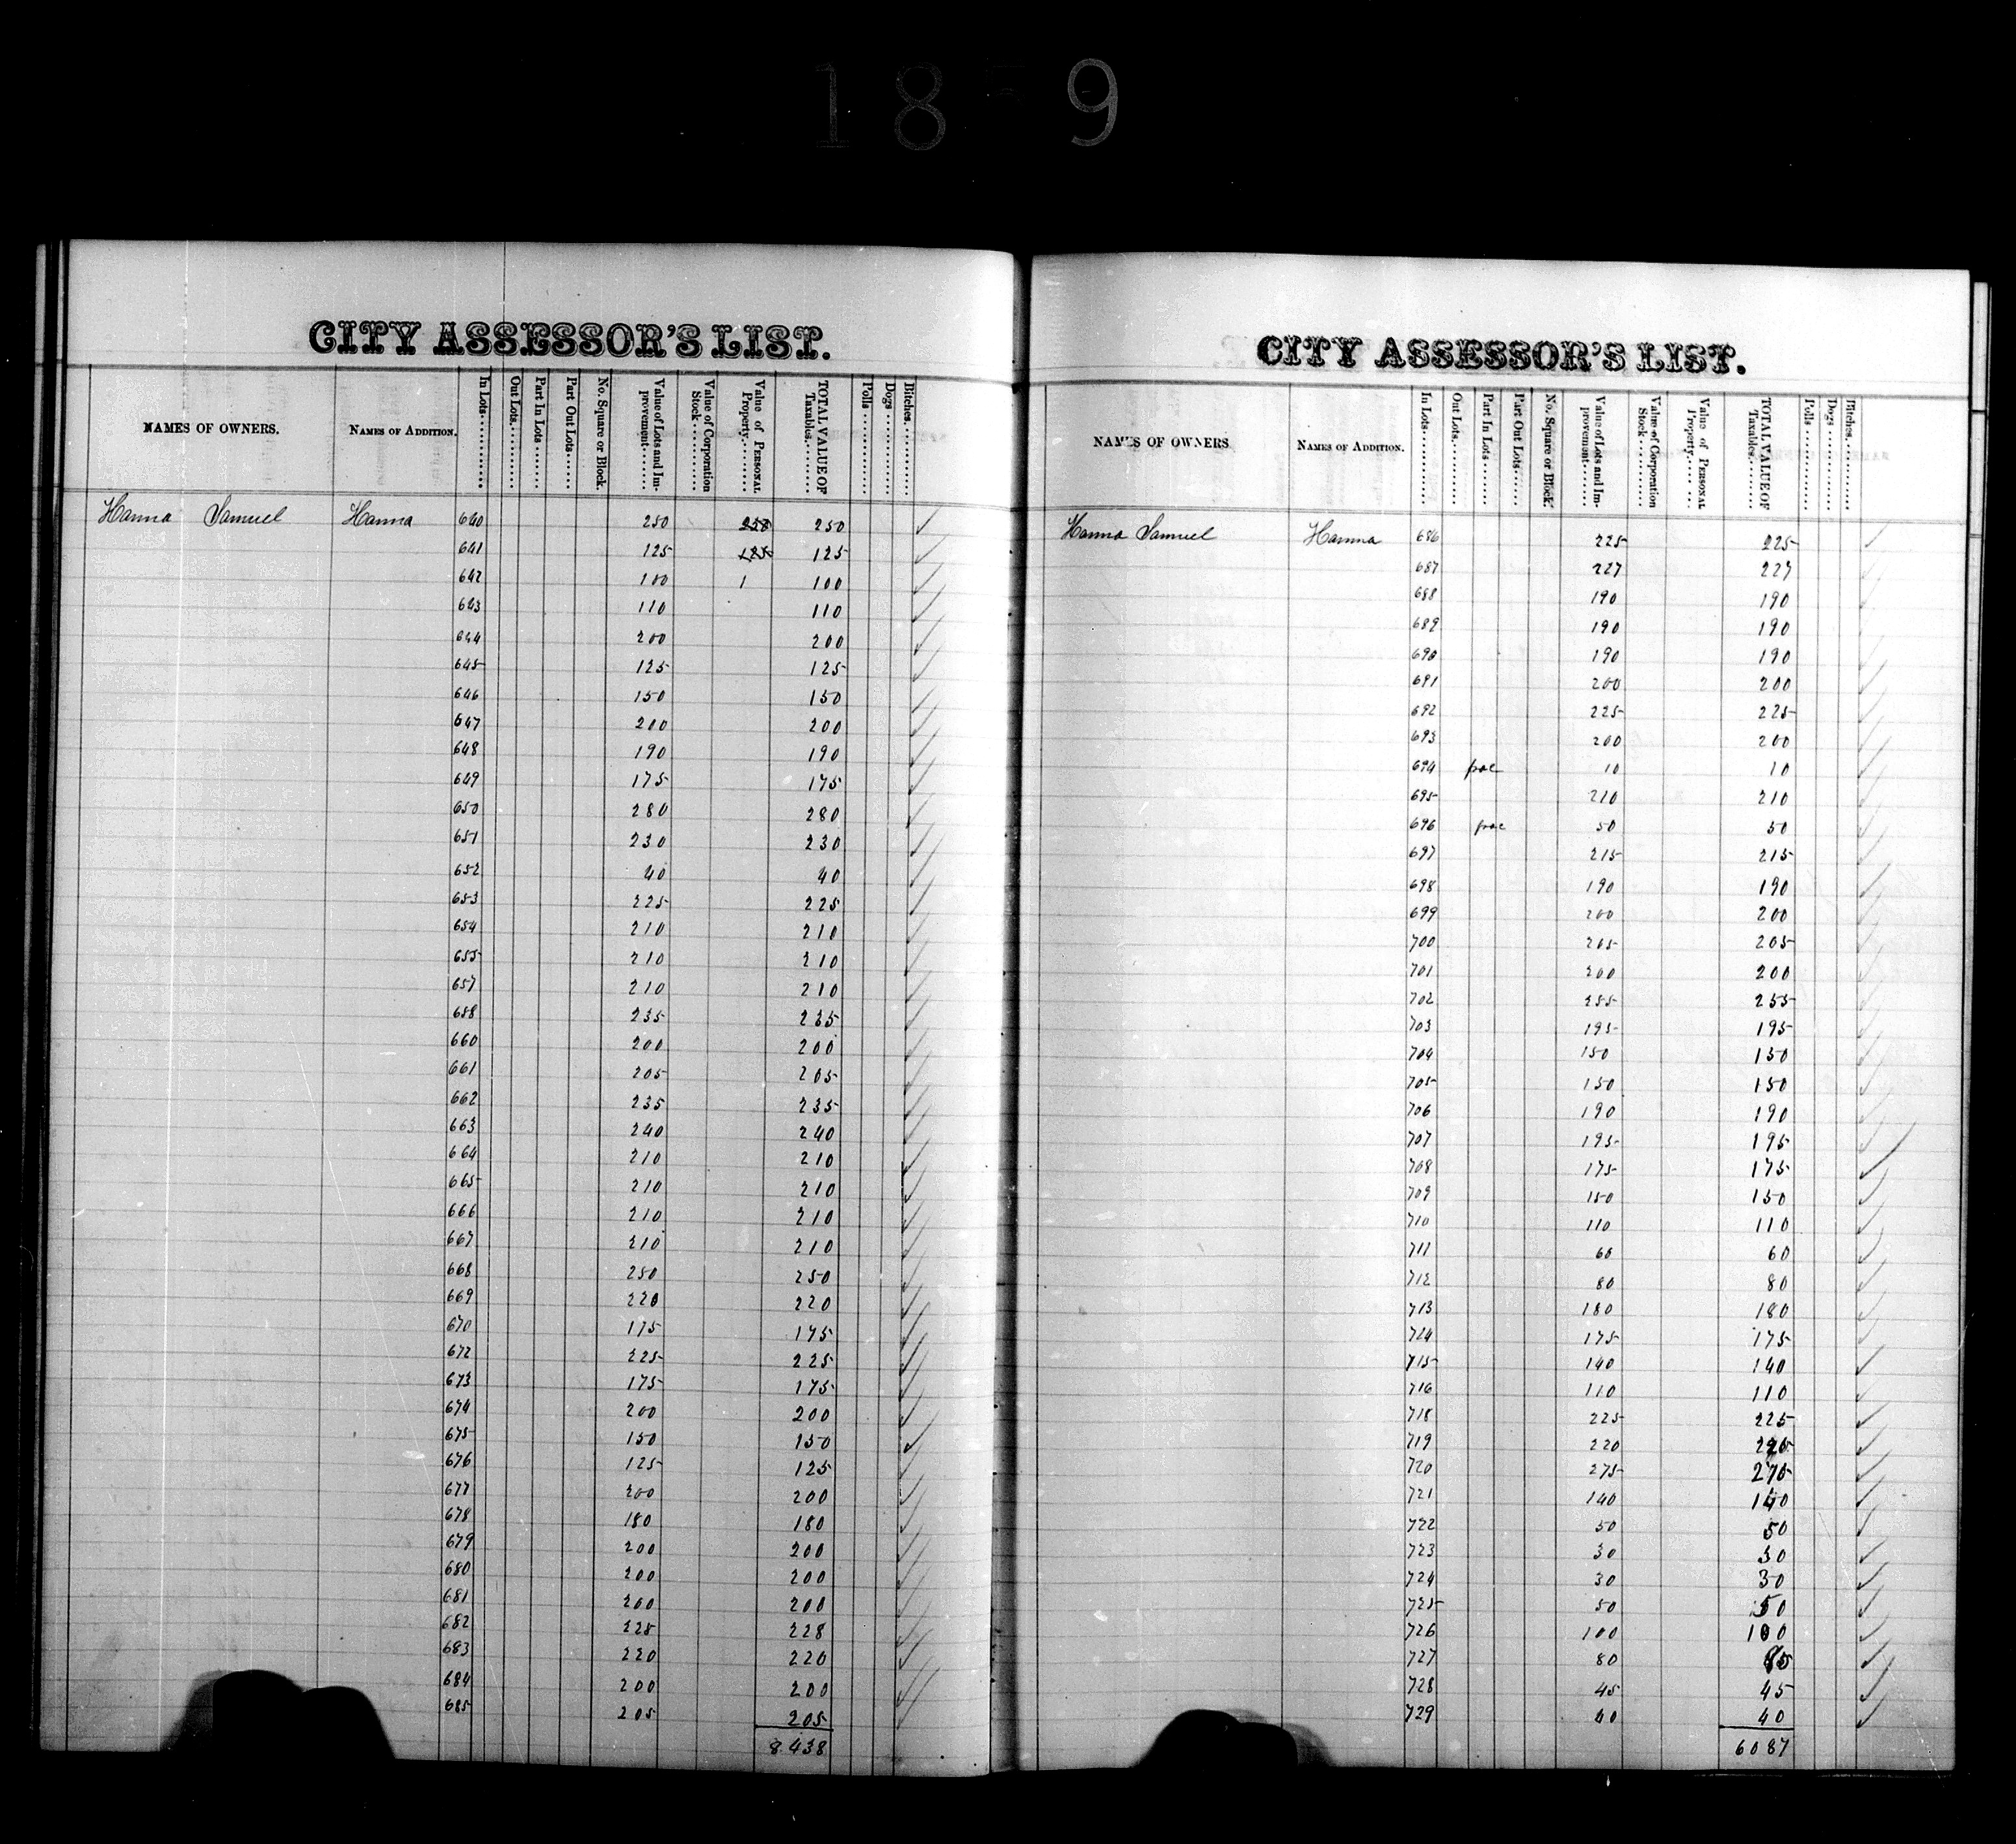 18 9
CITY ASSESSOR'S LIST.
NAMES OF OWNERS. NAMES OF ADDITION. In Lots Out Lots Part In Lots Part Out Lots No. Square or Block. Value of Lots and Improvement Value of Corporation Stock Value of PERSONAL Property TOTAL VALUE OF Taxables Polls Dogs Bitches
Hanna Samuel Hanna 640 250 250 250
641 125 125 125
642 100 1 100
643 110 110
644 200 200
645 125 125
646 150 150
647 200 200
648 190 190
649 175 175
650 280 280
651 230 230
652 40 40
653 225 225
654 210 210
655 210 210
657 210 210
658 235 235
660 200 200
661 205 205
662 235 235
663 240 240
664 210 210
665 210 210
666 210 210
667 210 210
668 250 250
669 220 220
670 175 175
672 225 225
673 175 175
674 200 200
675 150 150
676 125 125
677 200 200
678 180 180
679 200 200
680 200 200
681 200 200
682 228 228
683 220 220
684 200 200
685 205 205
8.438
CITY ASSESSOR'S LIST.
NAMES OF OWNERS. NAMES OF ADDITION. In Lots Out Lots Part In Lots Part Out Lots No. Square or Block. Value of Lots and Improvement Value of Corporation Stock Value of PERSONAL Property TOTAL VALUE OF Taxables Polls Dogs Bitches
Hanna Samuel Hanna 686 225 225
687 227 227
688 190 190
689 190 190
690 190 190
691 200 200
692 225 225
693 200 200
694 10 10
695 210 210
696 50 50
697 215 215
698 190 190
699 200 200
700 205 205
701 200 200
702 255 255
703 195 195
704 150 150
705 150 150
706 190 190
707 195 195
708 175 175
709 150 150
710 110 110
711 60 60
712 80 80
713 180 180
724 175 175
715 140 140
716 110 110
718 225 225
719 220
720 275 275
721 140 140
722 50 50
723 30 30
724 30 30
725 50 50
726 100 100
727 80
728 45 45
729 40 40
6087